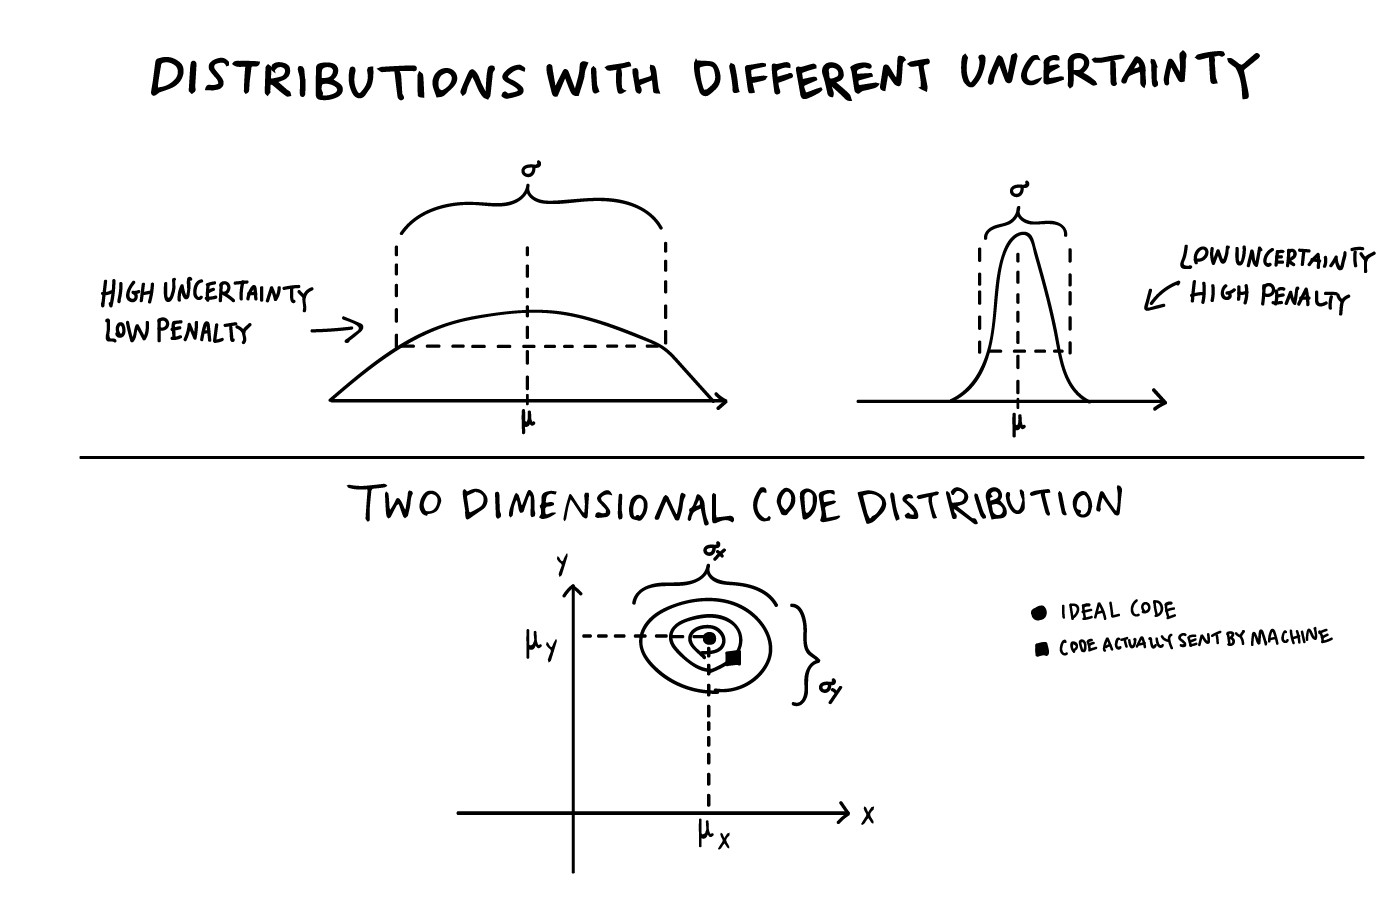 DISTRIBUTIONS WITH DIFFERENT UNCERTAINTY
σ
σ
HIGH UNCERTAINTY
LOW PENALTY
LOW UNCERTAINTY
HIGH PENALTY
μ
μ
TWO DIMENSIONAL CODE DISTRIBUTION
σx
Y
μy
σy
X
μx
IDEAL CODE
CODE ACTUALLY SENT BY MACHINE